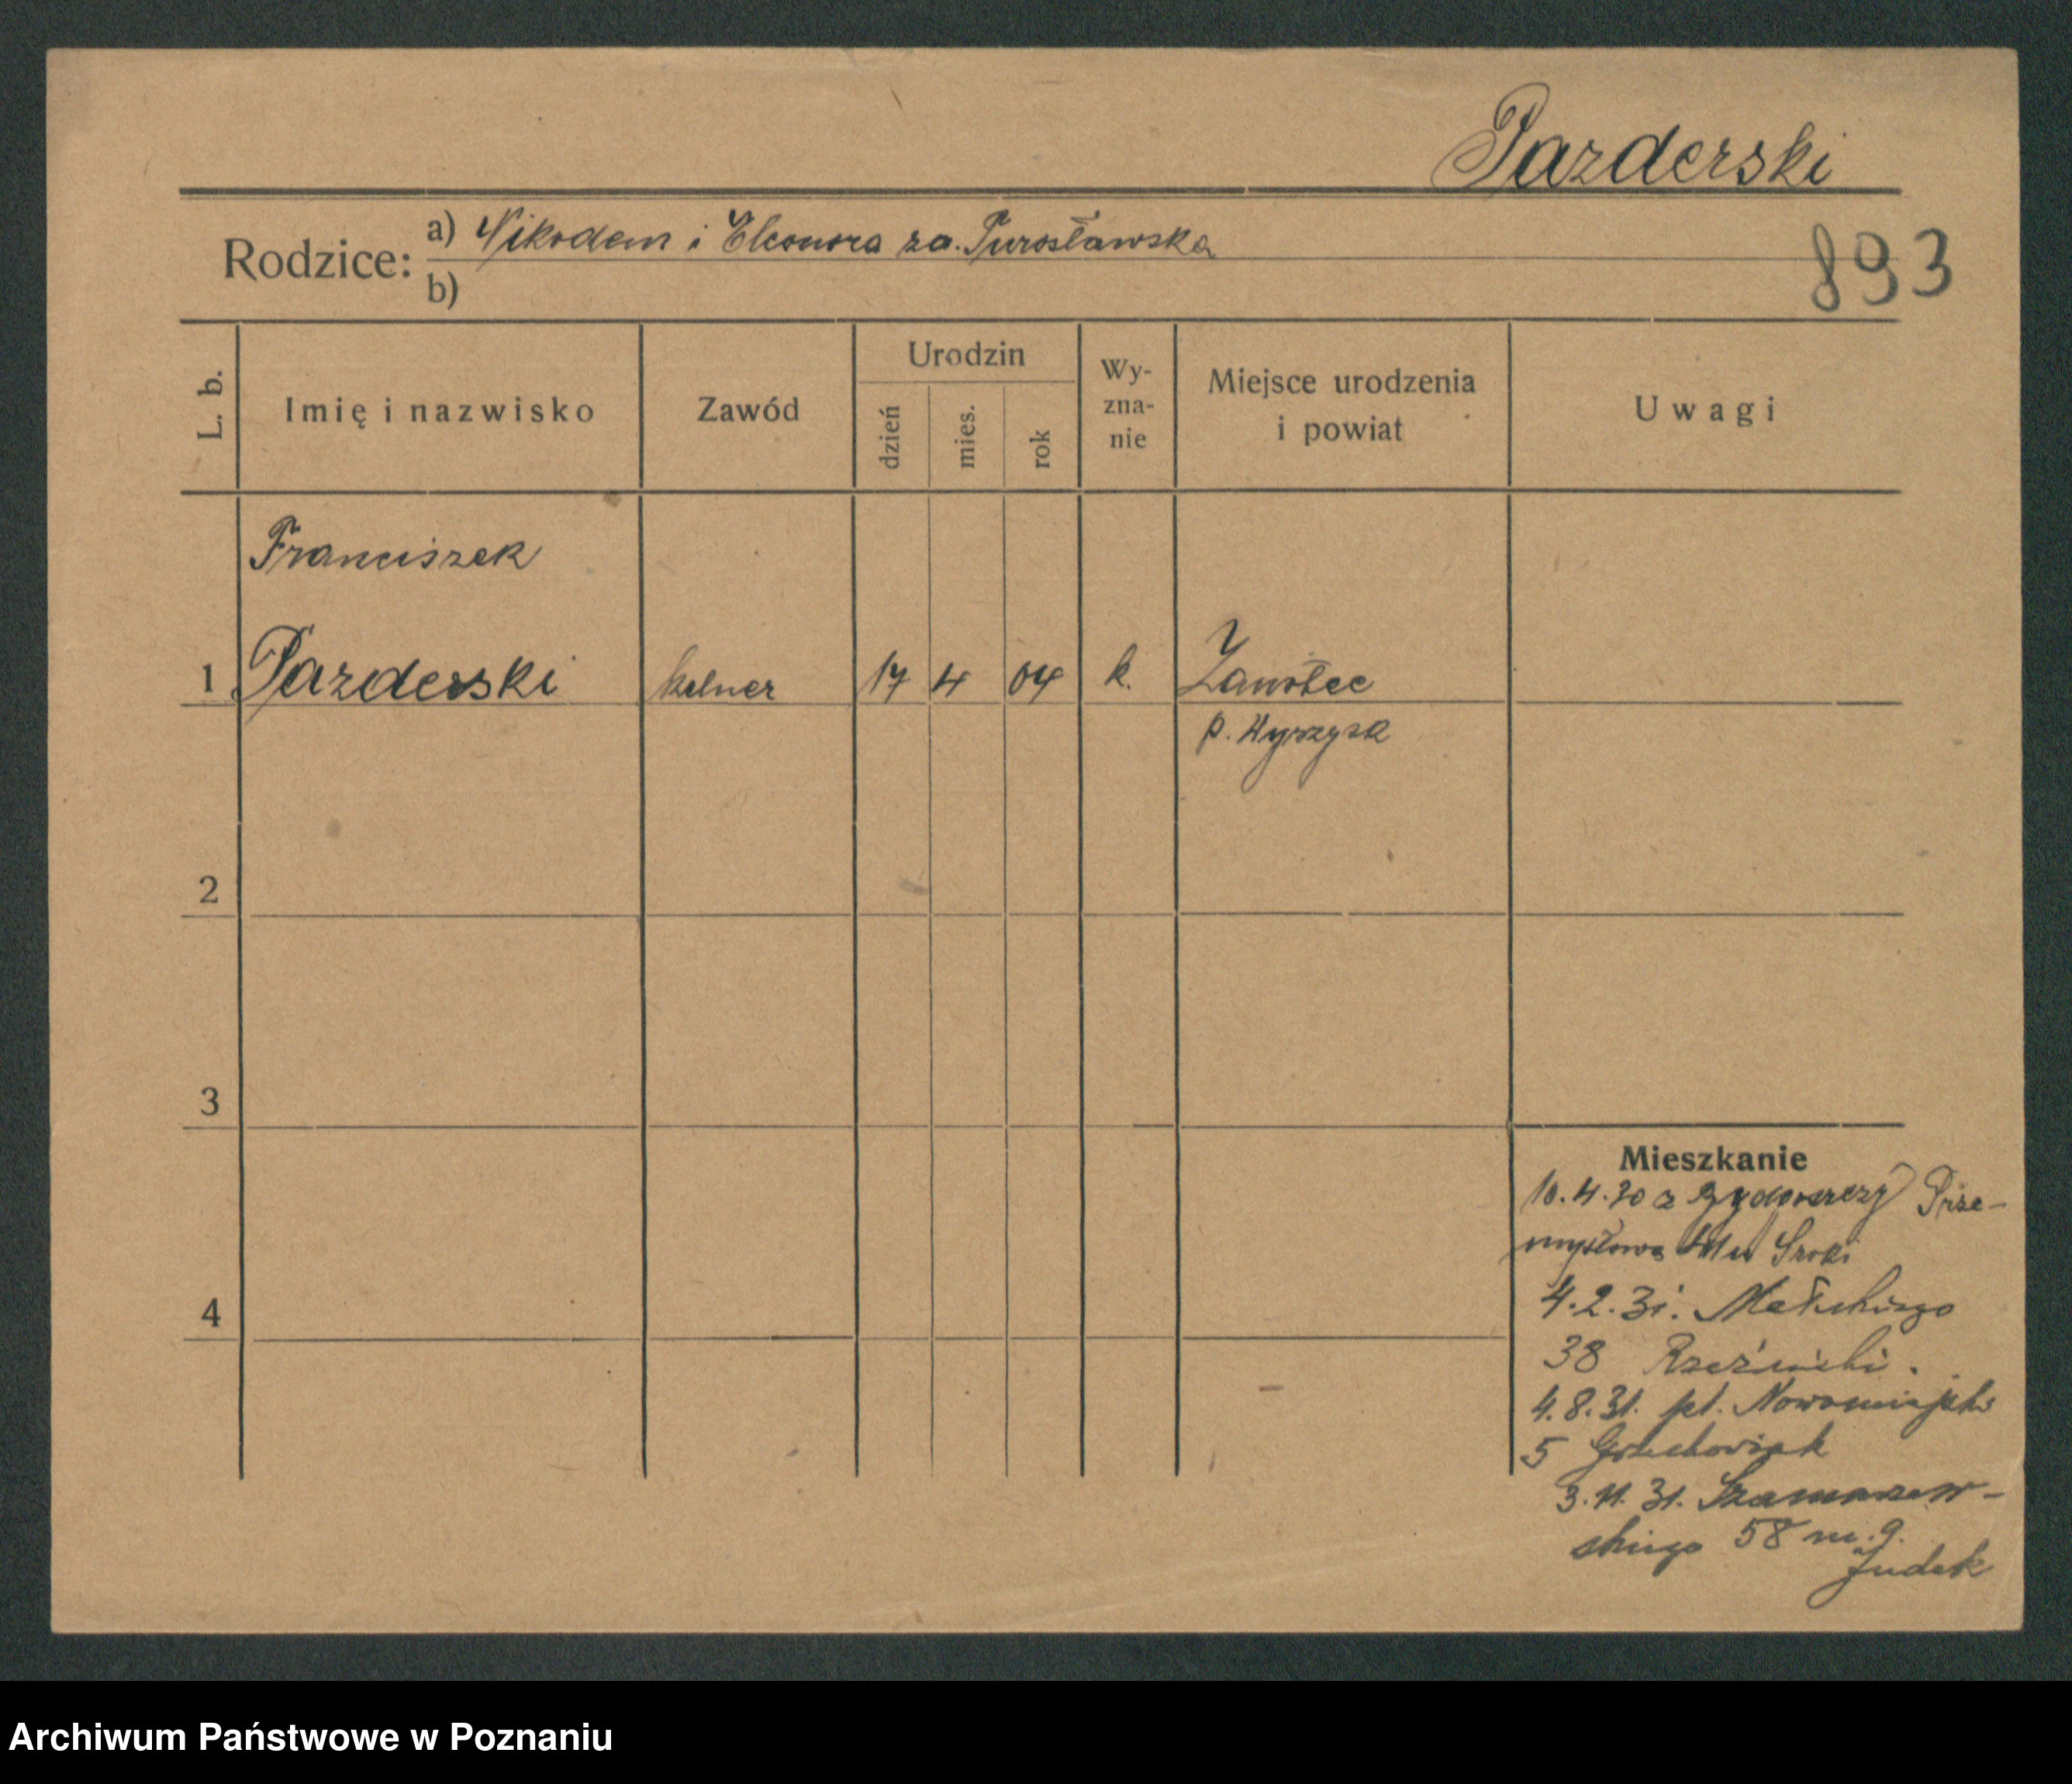 Pazderski
Rodzice: a) Nikodem i Eleonora za. Purosławska
893
b)
L. b.
Imię i nazwisko
Zawód
Urodzin
dzień
mies.
rok
Wy-
zna-
nie
Miejsce urodzenia
i powiat
Uwagi
Franciszek
1 Pazderski kelner 17 4 04 k.
p. Wyrzysk
2
3
4
Mieszkanie
10.4.30 z Bydgoszczy Prze-
mysłowa u Sroki
4.2.31. Małeckiego
38
4.8.31. pl. Nowomiejski
5 Grzechowiak
3.11.31. Szamarzew-
skiego 58 m. 9.
Judek
Archiwum Państwowe w Poznaniu